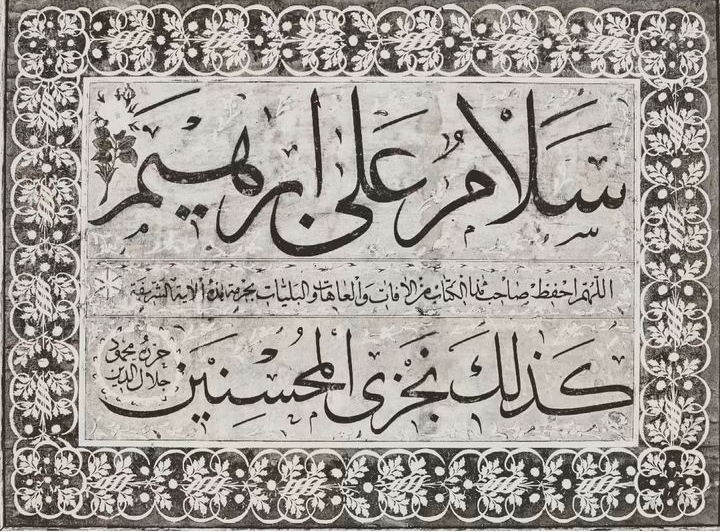 سَلَامٌ عَلى اِبرهيمَ
اللهم احفظ صاحب هذا الكتاب من الآفات والعاهات والبليات بحرمة هذه الآية الشريفة
كَذلِكَ نَجْزِى الْمُحْسِنِينَ
حرره محمود
جلال الدين